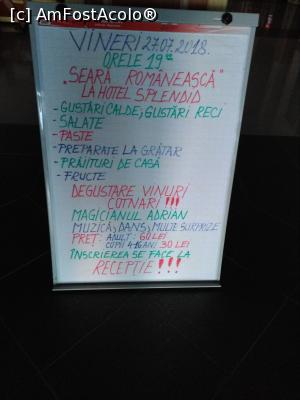 [c] AmFostAcolo®
VINERI 27.07.2018.
ORELE 19⁰⁰
„SEARĂ ROMÂNEASCĂ"
LA HOTEL SPLENDID
-GUSTĂRI CALDE; GUSTĂRI RECI
-SALATE
-PASTE
-PREPARATE LA GRĂTAR
-PRĂJITURI DE CASĂ
-FRUCTE
DEGUSTARE VINURI
COTNARI !!!
MAGICIANUL ADRIAN
MUZICĂ; DANS; MULTE SURPRIZE
PREȚ: ADULT: 60 LEI
COPII 4-16 ANI 30 LEI
ÎNSCRIEREA SE FACE LA
RECEPȚIE !!!